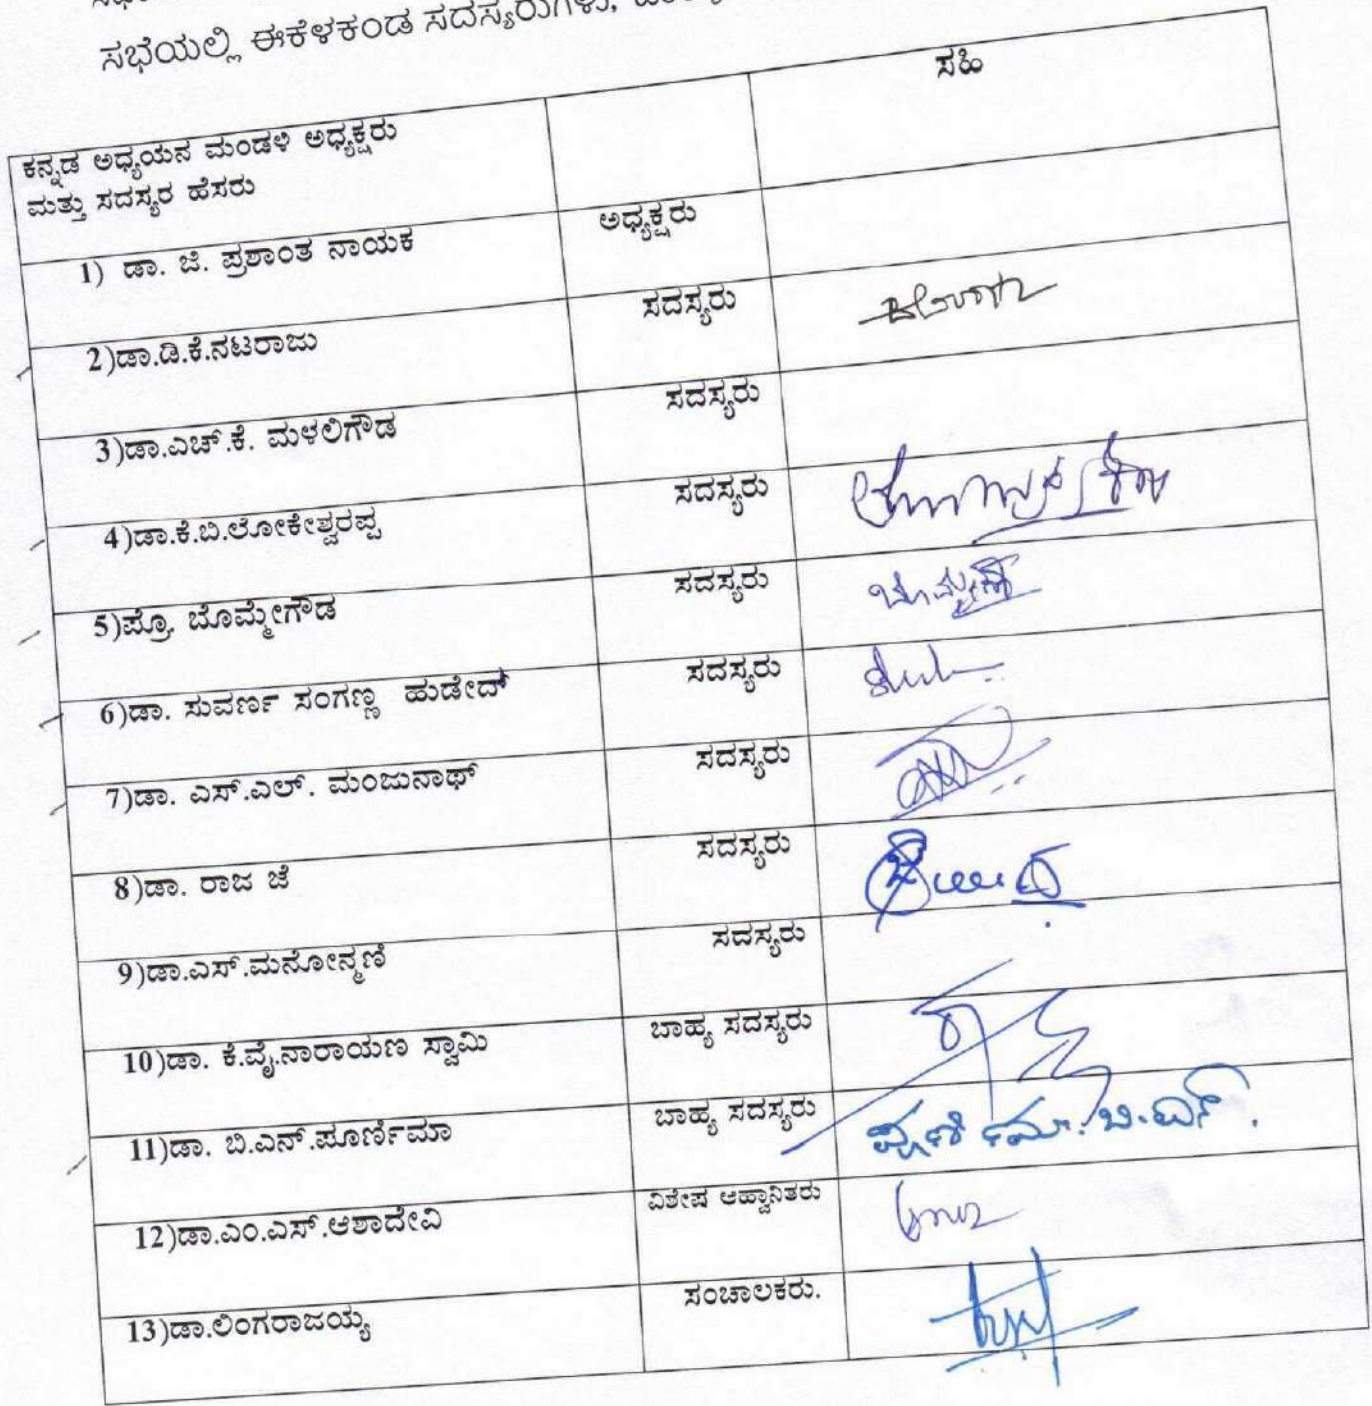 ಸಭೆಯಲ್ಲಿ ಈಕೆಳಕಂಡ
ಸಹಿ
ಕನ್ನಡ ಅಧ್ಯಯನ ಮಂಡಳಿ ಅಧ್ಯಕ್ಷರು
ಮತ್ತು ಸದಸ್ಯರ ಹೆಸರು
1) ಡಾ. ಜಿ. ಪ್ರಶಾಂತ ನಾಯಕ ಅಧ್ಯಕ್ಷರು
2)ಡಾ.ಡಿ.ಕೆ.ನಟರಾಜು ಸದಸ್ಯರು
3)ಡಾ.ಎಚ್.ಕೆ. ಮಳಲಿಗೌಡ ಸದಸ್ಯರು
4)ಡಾ.ಕೆ.ಬಿ.ಲೋಕೇಶ್ವರಪ್ಪ ಸದಸ್ಯರು
5)ಪ್ರೊ. ಬೊಮ್ಮೇಗೌಡ ಸದಸ್ಯರು
6)ಡಾ. ಸುವರ್ಣ ಸಂಗಣ್ಣ ಹುಡೇದ್ ಸದಸ್ಯರು
7)ಡಾ. ಎಸ್.ಎಲ್. ಮಂಜುನಾಥ್ ಸದಸ್ಯರು
8)ಡಾ. ರಾಜ ಜೆ ಸದಸ್ಯರು
9)ಡಾ.ಎಸ್.ಮನೋನ್ಮಣಿ ಸದಸ್ಯರು
10)ಡಾ. ಕೆ.ವೈ.ನಾರಾಯಣ ಸ್ವಾಮಿ ಬಾಹ್ಯ ಸದಸ್ಯರು
11)ಡಾ. ಬಿ.ಎನ್.ಪೂರ್ಣಿಮಾ ಬಾಹ್ಯ ಸದಸ್ಯರು ಪೂರ್ಣಿಮಾ. ಬಿ.ಎನ್.
12)ಡಾ.ಎಂ.ಎಸ್.ಆಶಾದೇವಿ ವಿಶೇಷ ಆಹ್ವಾನಿತರು
13)ಡಾ.ಲಿಂಗರಾಜಯ್ಯ ಸಂಚಾಲಕರು.